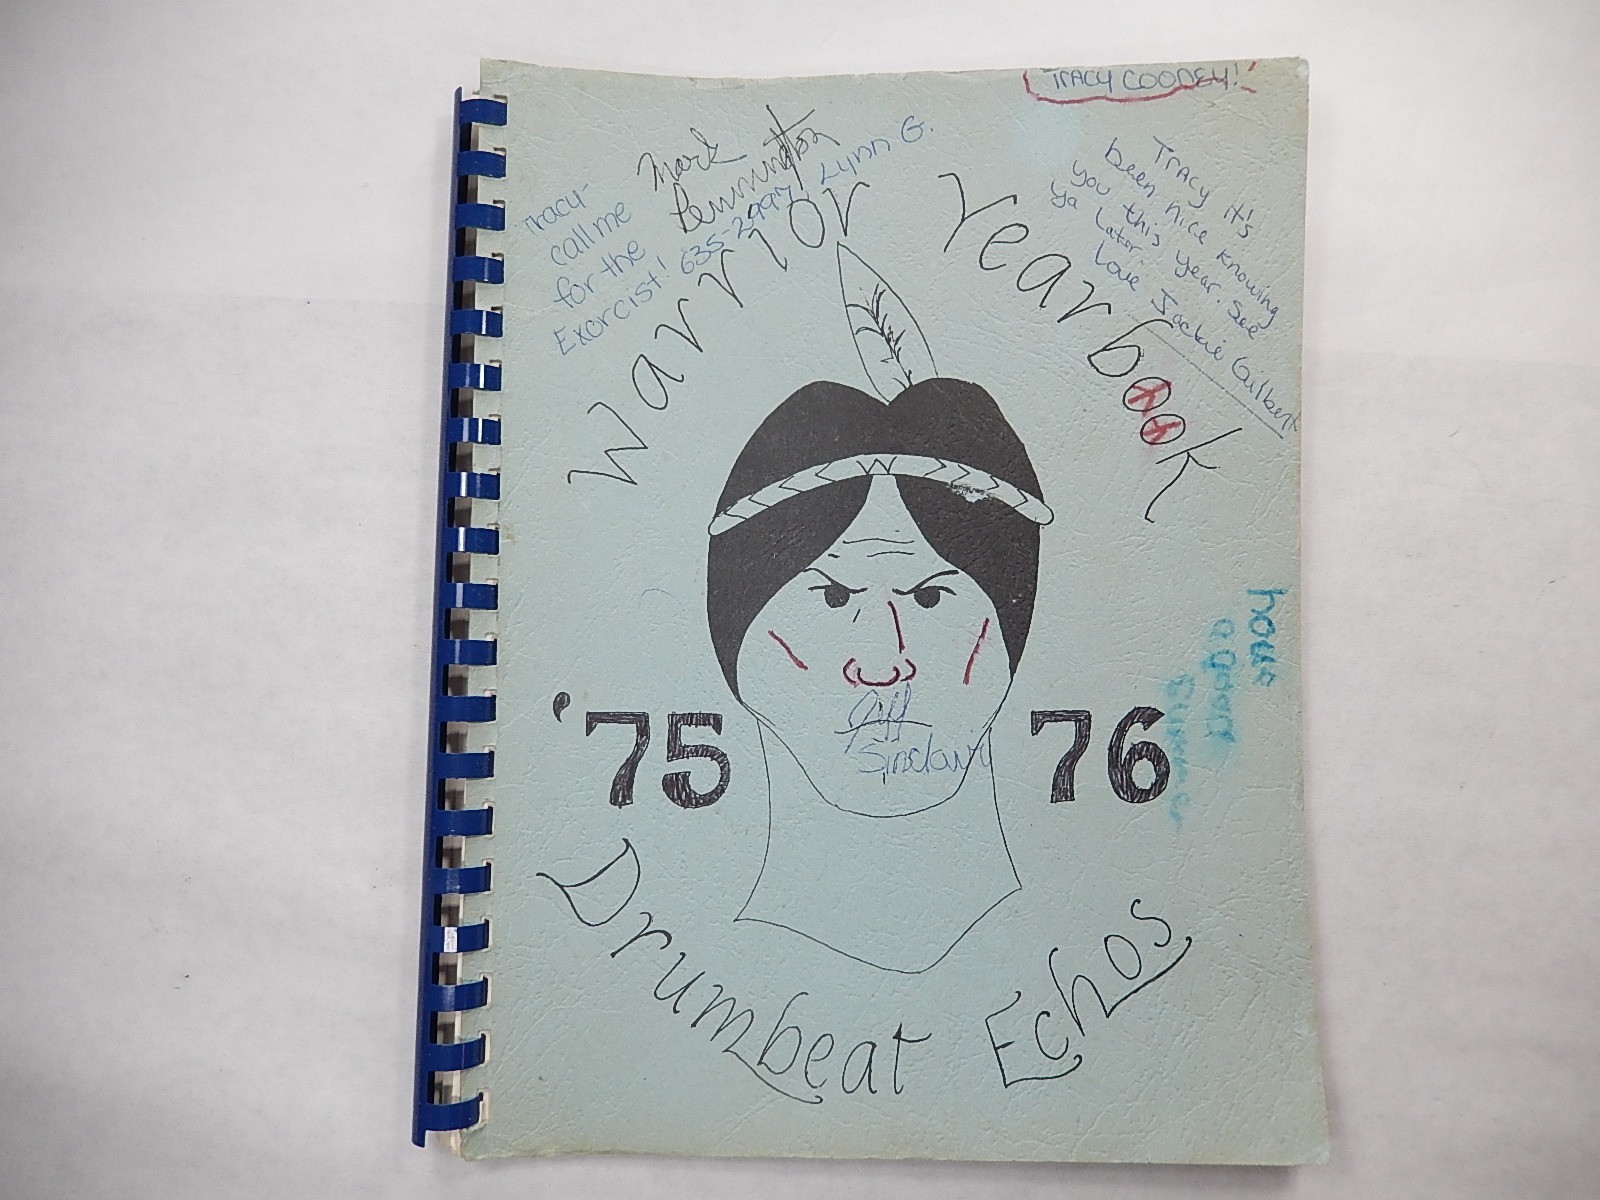 TRACY COONEY!
Mark
Pennington
Tracy-
call me
for the
Exorcist! 635-2997 Lynn G.
Tracy it's
been nice knowing
you this year. See
ya later.
Love Jackie Gilbert
Warrior Yearbook
have
a good
summer
Jeff
Sinclair
'75 76
Drumbeat Echos